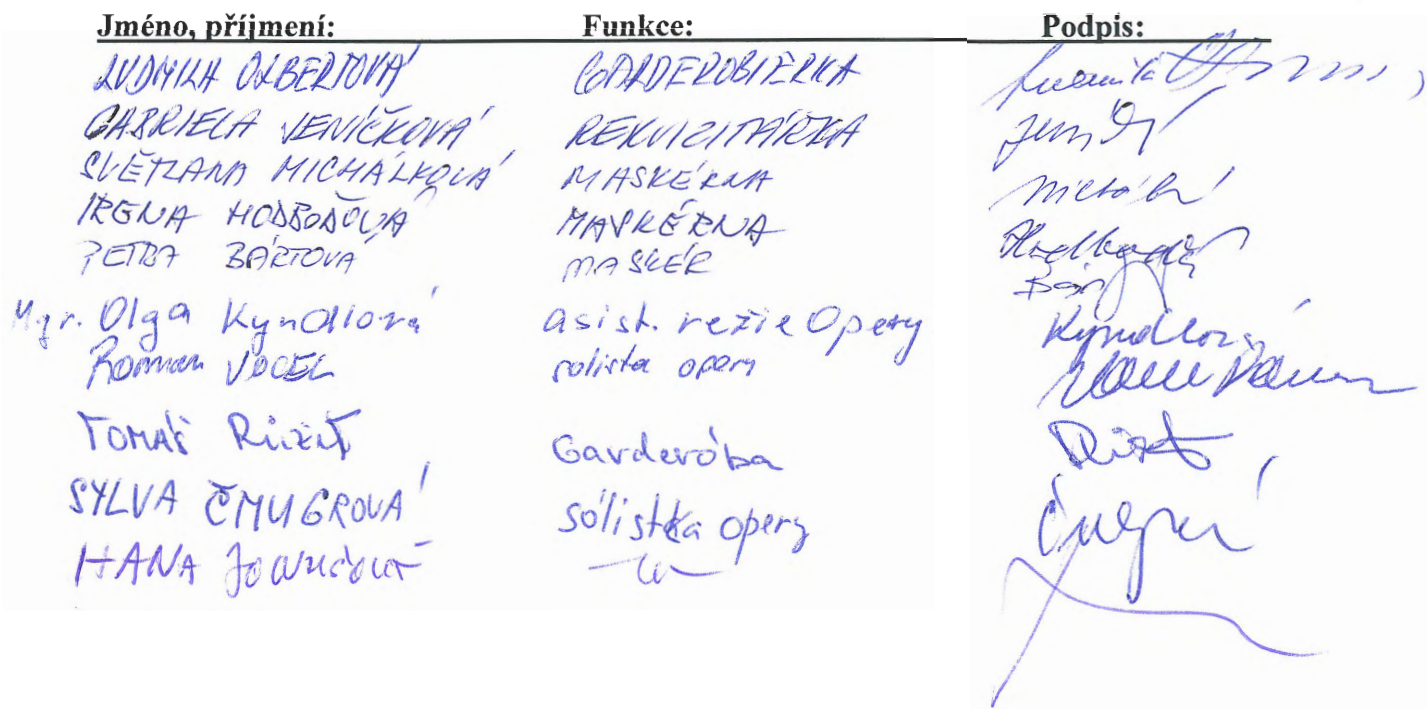 Jméno, příjmení: Funkce: Podpis:
LUDMILA OLBERTOVÁ GARDEROBIÉRKA Ludmila
GABRIELA JENÍČKOVÁ REKVIZITÁŘKA
SVĚTLANA MICHÁLKOVÁ MASKÉRNA
IRENA HODBOĎOVÁ MASKÉRNA
PETRA BÁRTOVÁ MASKÉR
Mgr. Olga Kyndlová asist. režie Opery Kyndlová
Roman VOCEL solista opery
TOMÁŠ Garderóba
SYLVA ČMUGROVÁ sólistka opery
HANA